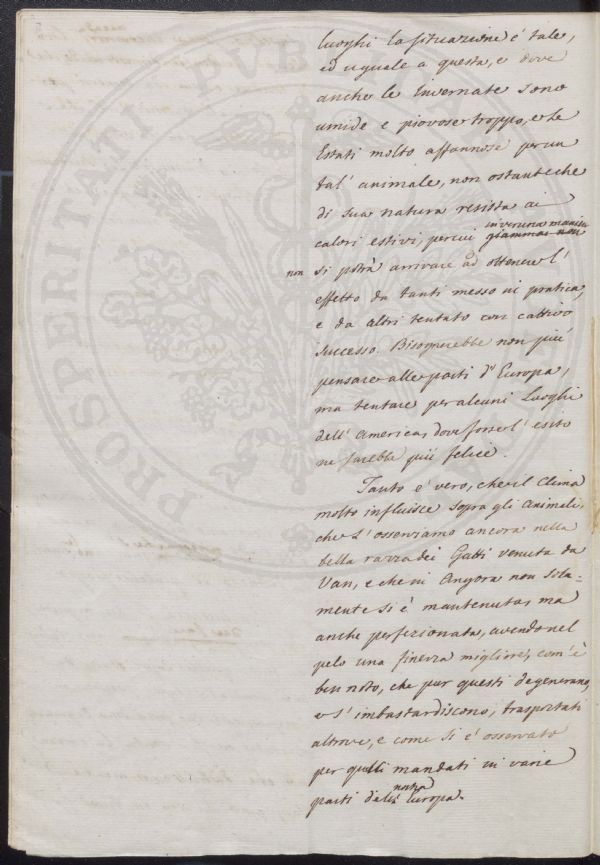 luoghi la situazione é tale,
ed uguale a questa, e dove
anche le Invernate sono
umide e piovose troppo, e le
Estati molto affannose per un
tal' animale, non ostante che
di sua natura resista ai
calori estivi, per cui in veruna maniera giammai non
non si potrà arrivare ad ottenere l'
effetto da tanti messo in pratica,
e da altri tentato con cattivo
successo. Bisognerebbe non più
pensare alle parti d' Europa,
ma tentare per alcuni Luoghi
dell' America, dove forse l' esito
ne sarebbe più felice.
Tanto é vero, che il Clima
molto influisce sopra gli animali,
che l' osserviamo ancora nella
bella razza dei Gatti venuta da
Van, e che in Angora non sola-
mente si è mantenuta, ma
anche perfezionata, avendo nel
pelo una finezza migliore, com' è
ben noto, che pur questi degenerano,
e s' imbastardiscono, trasportati
altrove, e come si é osservato
per quelli mandati in varie
parti della nostra Europa.
PROSPERITATI PVBLICAE